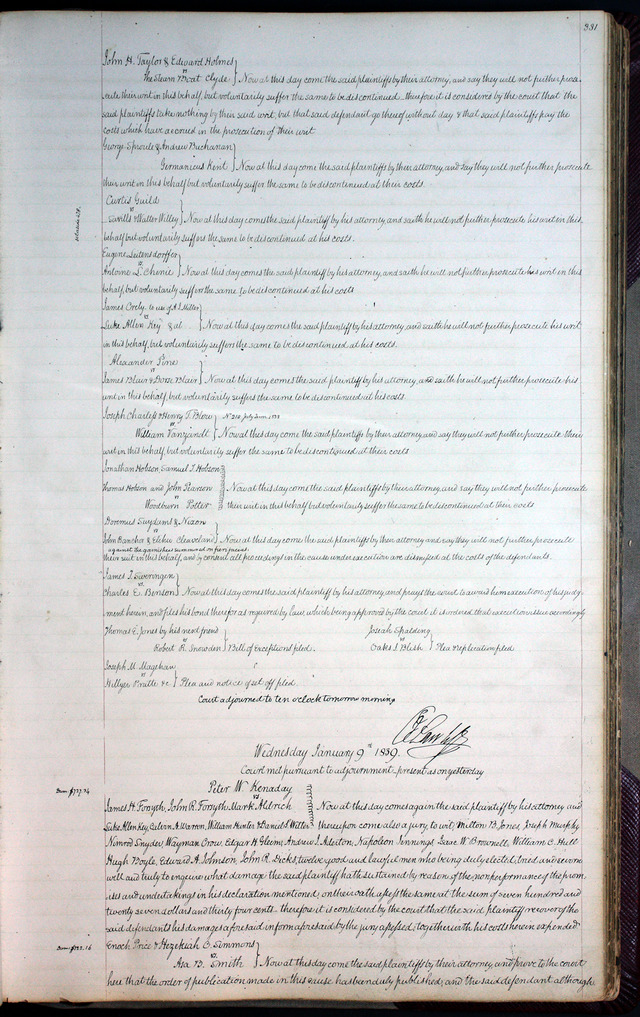 331
John H. Taylor & Edward Holmes
vs
The Steam Boat Clyde } Now at this day come the said plaintiffs by their attorney, and say they will not further prose
cute their writ in this behalf, but voluntarily suffer the same to be discontinued. therefore it is considered by the court that the
said plaintiffs take nothing by their said writ, but that said defendant go thereof without day & that said plaintiffs pay the
costs which have accrued in the prosecution of their writ
George Sproule & Andrew Buchanan
vs
Germanicus Kent } Now at this day come the said plaintiffs by their attorney, and say they will not further prosecute
their writ in this behalf but voluntarily suffer the same to be discontinued at their costs.
Curtis Guild
vs
& Walter Willey } Now at this day comes the said plaintiff by his attorney, and saith he will not further prosecute his writ in this
behalf but voluntarily suffers the same to be discontinued at his costs.
Eugene Leitensdorffer
vs
Antoine L. Chenie } Now at this day comes the said plaintiff by his attorney, and saith he will not further prosecute his writ in this
behalf, but voluntarily suffers the same to be discontinued at his costs
James Crely to use of A J Miller
vs
Luke Allen Key & al } Now at this day comes the said plaintiff by his attorney, and saith he will not further prosecute his writ
in this behalf, but voluntarily suffers the same to be discontinued at his costs.
Alexander Pine
vs
James Blair & Dove Blair } Now at this day comes the said plaintiff by his attorney, and saith he will not further prosecute his
writ in this behalf, but voluntarily suffers the same to be discontinued at his costs
Joseph Charless & Henry T. Blow } No 210 July Term,
vs
William Vanzandt } Now at this day come the said plaintiffs by their attorney and say they will not further prosecute their
writ in this behalf, but voluntarily suffer the same to be discontinued at their costs
Jonathan Hobson, Samuel T. Hobson
Thomas Hobson and John Pearson } Now at this day come the said plaintiffs by their attorney, and say they will not further prosecute
vs
Woodburn Potter } their writ in this behalf but voluntarily suffer the same to be discontinued at their costs
Bommus Suydams & Nixon
vs
John Bancher & Elihu Cleaveland } Now at this day come the said plaintiffs by their attorney and say they will not further prosecute
against the garnishees summoned on fieri facias
their suit in this behalf, and by consent all proceedings in the cause under execution are dismissed at the costs of the defendants.
James T. Sweringen
vs
Charles E. Benson } Now at this day comes the said plaintiff by his attorney and prays the court to award him execution of his judg
ment herein, and files his bond therefor as required by law, which being approved by the court it is ordered that execution issue accordingly
Thomas E. Jones by his next friend
vs
Robert R. Snowden } Bill of Exceptions filed.
Josiah Spalding
vs
Oaks & Blish } Plea & replication filed.
Joseph M. Magehan
vs
Hillyer Pratte &c } Plea and notice of set off filed
Court adjourned to ten o'clock tomorrow morning
Wednesday January 9th 1839.
Court met pursuant to adjournment present as on yesterday
Dam: $727.34
Peter W Kenaday
vs
James H. Forsyth, John R. Forsyth Mark Aldrich } Now at this day comes again the said plaintiff by his attorney and
Luke Allen Key, Calvin A Warren, William Hunter & Daniel S. Witter } thereupon come also a jury to wit; Milton B Jones, Joseph Murphy
Nimrod Snyder, Wayman Crow, Edgar H Gleim, Andrew J. Alerton, Napoleon Jennings, Isaac W. Brownell, William C. Hull
Hugh Boyle, Edward A. Johnston, John R. Decks, twelve good and lawful men who being duly elected, tried and sworn
well and truly to enquire what damage the said plaintiff hath sustained by reason of the nonperformance of the prom
ises and undertakings in his declaration mentioned, on their oath assess the same at the sum of seven hundred and
twenty seven dollars and thirty four cents. therefore it is considered by the court that the said plaintiff recover of the
said defendants his damages aforesaid in form aforesaid by the jury assessed, together with his costs herein expended
Enoch Price & Hezekiah C. Simmons
vs
Asa B. Smith } Now at this day come the said plaintiffs by their attorney, and prove to the court
here that the order of publication made in this cause has been duly published; and the said defendant although